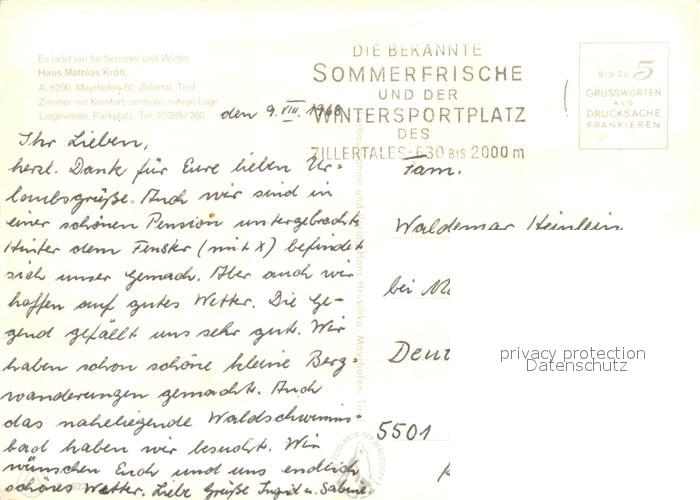 Es ladet ein für Sommer und Winter
Haus Mathias Kröll,
A-6290, Mayrhofen 60, Zillertal, Tirol
Zimmer mit Komfort, zentrale, ruhige Lage
Liegewiese, Parkplatz, Tel. 05285/260
DIE BEKANNTE
SOMMERFRISCHE
UND DER
WINTERSPORTPLATZ
DES
ZILLERTALES · 630 BIS 2000 m
BIS ZU 5
GRUSSWORTEN
ALS
DRUCKSACHE
FRANKIEREN
den 9. VIII. 1968
Ihr Lieben,
herzl. Dank für Eure lieben Ur-
laubsgrüße. Auch wir sind in
einer schönen Pension untergebracht.
Hinter dem Fenster (mit X) befindet
sich unser Gemach. Aber auch wir
hoffen auf gutes Wetter. Die Ge-
gend gefällt uns sehr gut. Wir
haben schon schöne kleine Berg-
wanderungen gemacht. Auch
das naheliegende Waldschwimm-
bad haben wir besucht. Wir
wünschen Euch und uns endlich
schönes Wetter. Liebe Grüße Ingrid u. Sabine
Hruschka, Mayrhofen, Tirol
Fam.
Waldemar Heinlein
bei
5501
privacy protection
Datenschutz